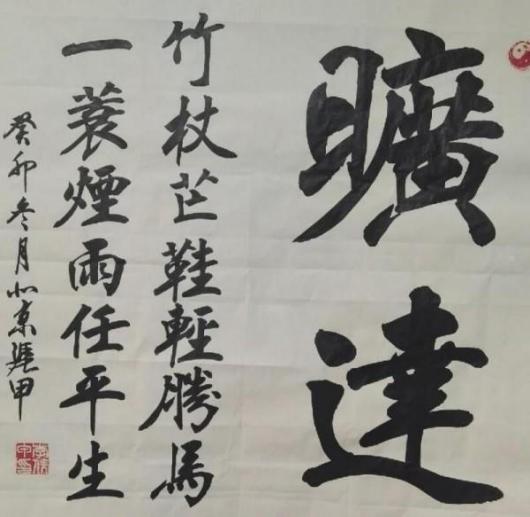 曠達
竹杖芒鞋輕勝馬
一蓑煙雨任平生
癸卯冬月小東雅甲